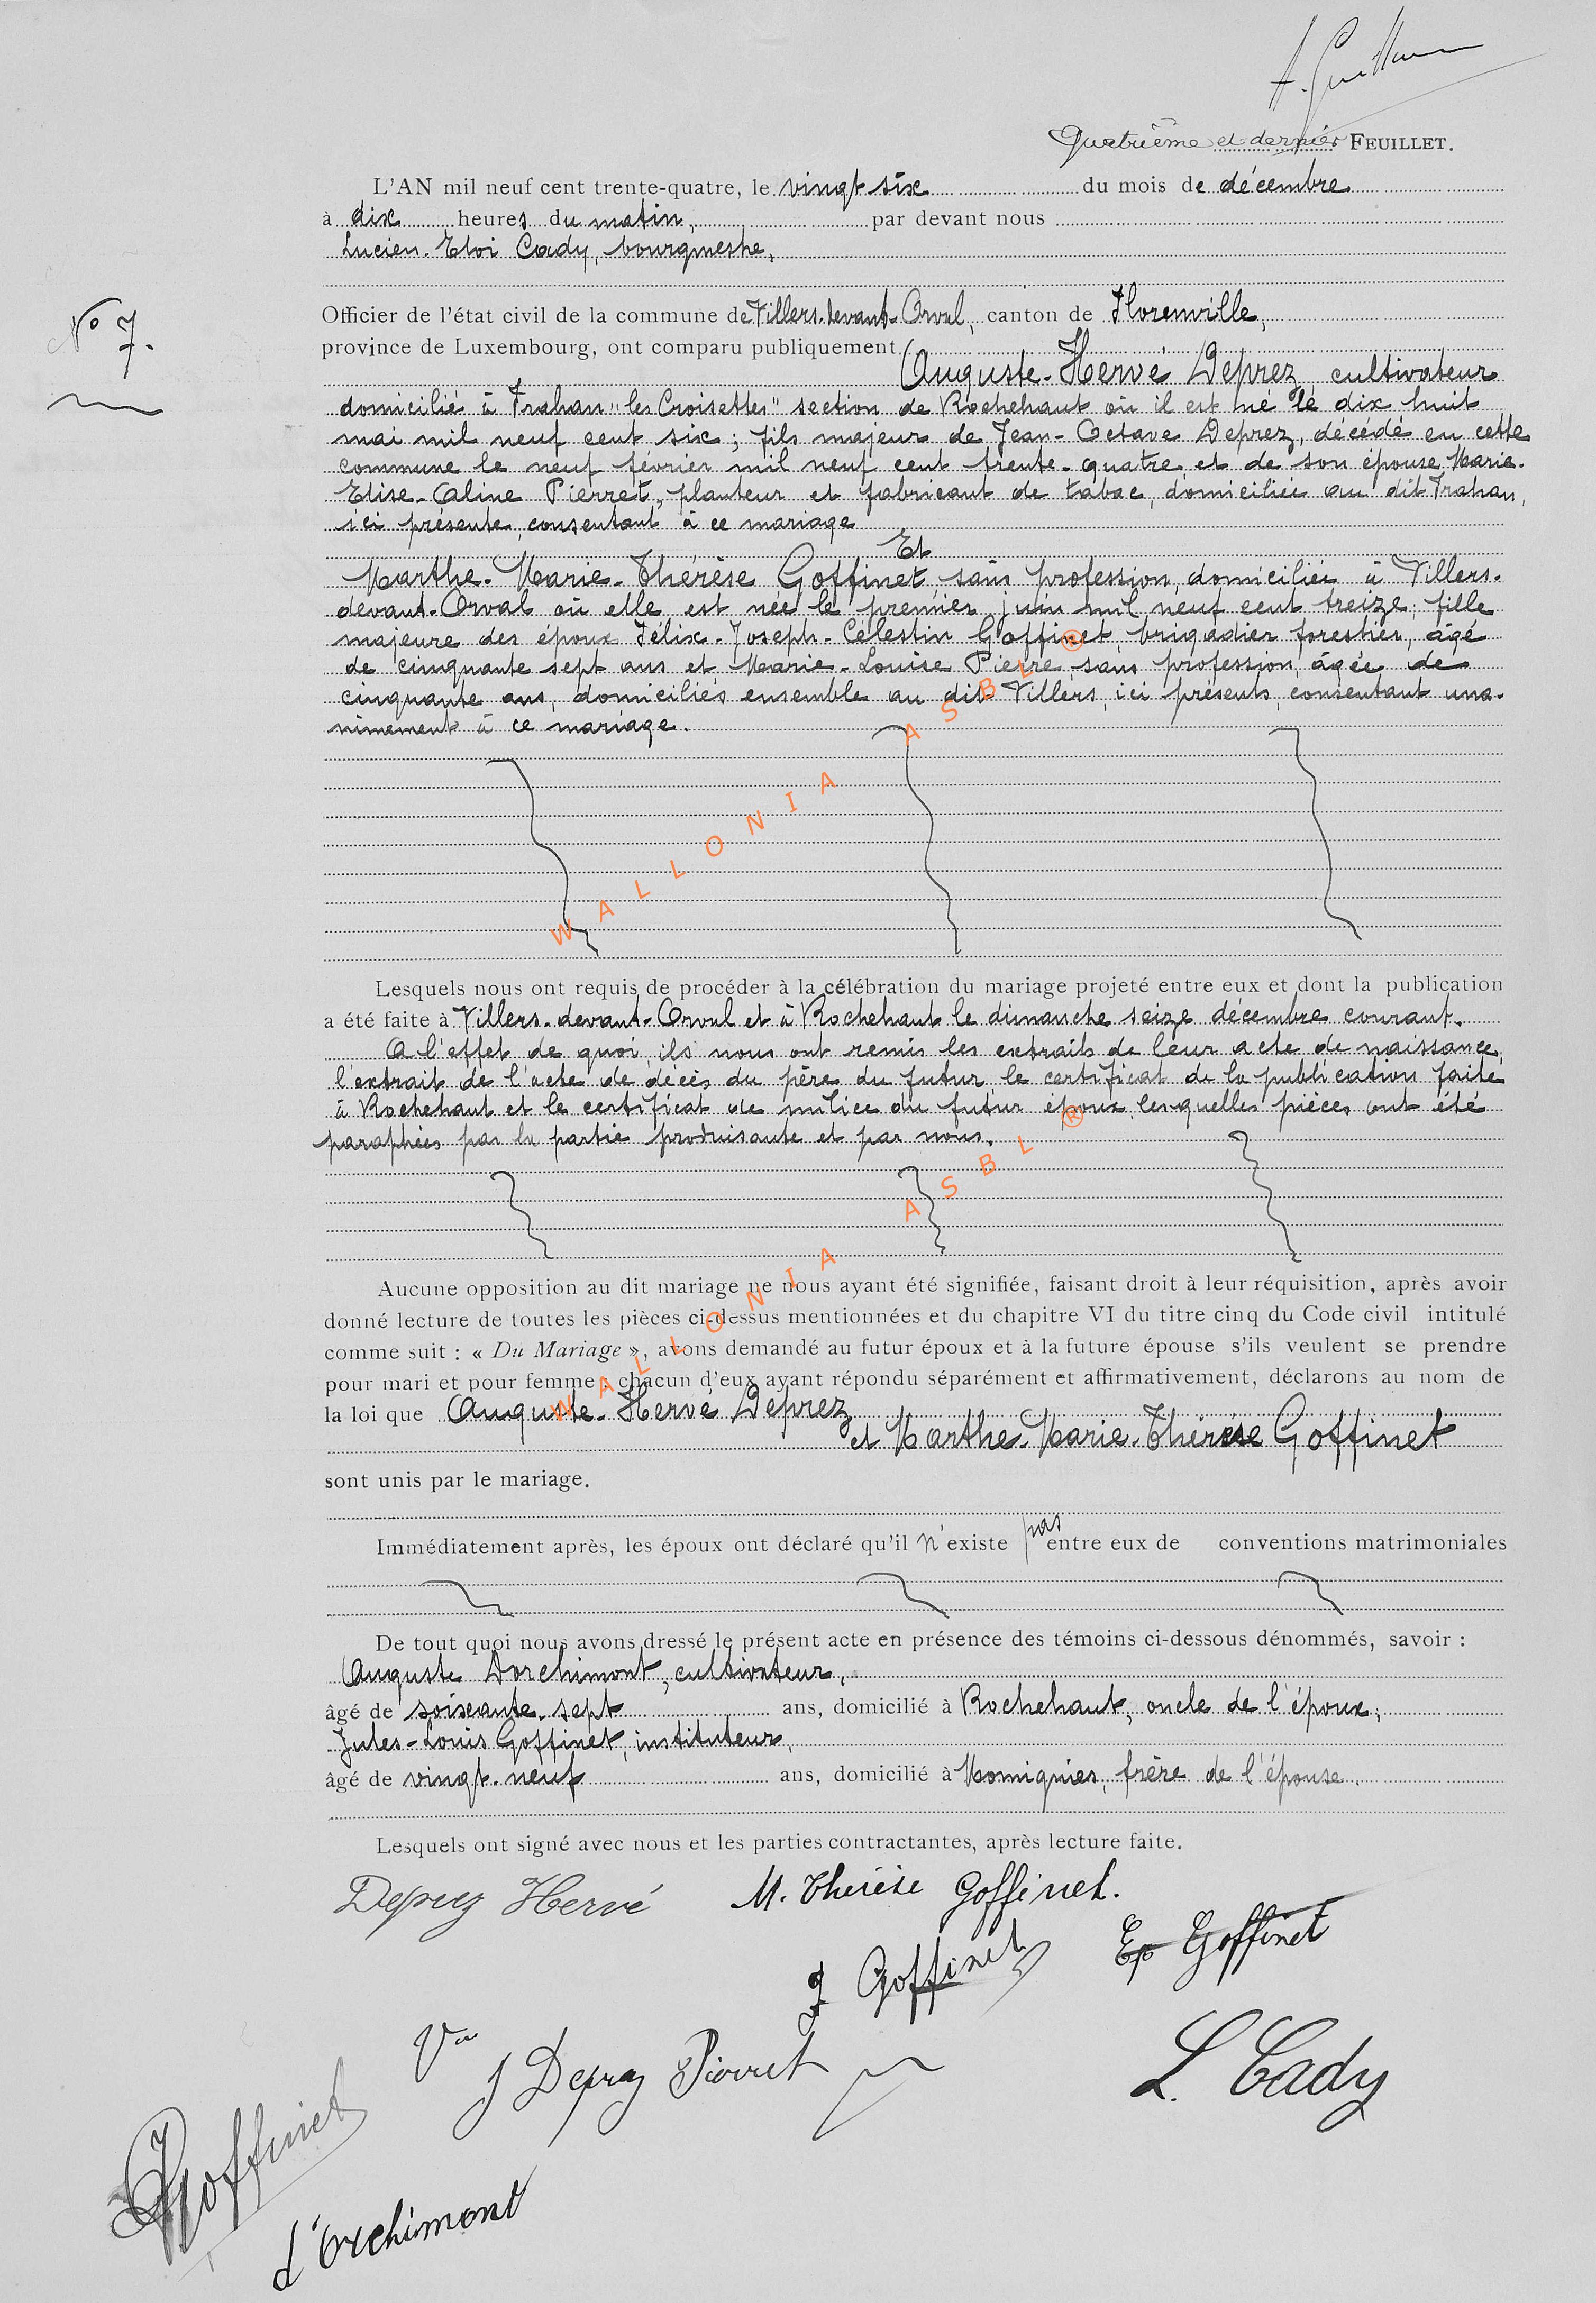 A. Guillaume
Quatrième et dernier FEUILLET.
L'AN mil neuf cent trente-quatre, le vingt six du mois de décembre
à dix heures du matin, par devant nous
Lucien-Eloi Cady, bourgmestre,
N° 7.
Officier de l'état civil de la commune de Villers-devant-Orval, canton de Florenville,
province de Luxembourg, ont comparu publiquement
Auguste-Hervé Deprez, cultivateur
domicilié à Frahan "les Croisettes" section de Rochehaut où il est né le dix huit
mai mil neuf cent six; fils majeur de Jean-Octave Deprez, décédé en cette
commune le neuf février mil neuf cent trente-quatre et de son épouse Marie-
Elise-Aline Pierret, planteur et fabricant de tabac, domiciliée au dit Frahan,
ici présente, consentant à ce mariage
Et
Marthe-Marie-Thérèse Goffinet, sans profession, domiciliée à Villers-
devant-Orval où elle est née le premier juin mil neuf cent treize, fille
majeure des époux Félix-Joseph-Célestin Goffinet, brigadier forestier, âgé
de cinquante sept ans et Marie-Louise Pierre, sans profession, âgée de
cinquante ans, domiciliés ensemble au dit Villers, ici présents, consentant una-
nimement à ce mariage.
WALLONIA ASBL ®
Lesquels nous ont requis de procéder à la célébration du mariage projeté entre eux et dont la publication
a été faite à Villers-devant-Orval et à Rochehaut le dimanche seize décembre courant.
A l'effet de quoi, ils nous ont remis les extraits de leur acte de naissance,
l'extrait de l'acte de décès du père du futur, le certificat de la publication faite
à Rochehaut et le certificat de milice du futur époux, lesquelles pièces ont été
paraphées par la partie produisante et par nous.
WALLONIA ASBL ®
Aucune opposition au dit mariage ne nous ayant été signifiée, faisant droit à leur réquisition, après avoir
donné lecture de toutes les pièces ci-dessus mentionnées et du chapitre VI du titre cinq du Code civil intitulé
comme suit : « Du Mariage », avons demandé au futur époux et à la future épouse s'ils veulent se prendre
pour mari et pour femme ; chacun d'eux ayant répondu séparément et affirmativement, déclarons au nom de
la loi que Auguste-Hervé Deprez
et Marthe-Marie-Thérèse Goffinet
sont unis par le mariage.
Immédiatement après, les époux ont déclaré qu'il n'existe pas entre eux de conventions matrimoniales
De tout quoi nous avons dressé le présent acte en présence des témoins ci-dessous dénommés, savoir :
Auguste Dorchimont, cultivateur,
âgé de soixante-sept ans, domicilié à Rochehaut, oncle de l'époux;
Jules-Louis Goffinet, instituteur,
âgé de vingt-neuf ans, domicilié à Momignies, frère de l'épouse.
Lesquels ont signé avec nous et les parties contractantes, après lecture faite.
Deprez Hervé M. Thérèse Goffinet.
J Goffinet Ep Goffinet
Vve J Deprez Pierret L. Cady
Goffinet
d'Orchimont